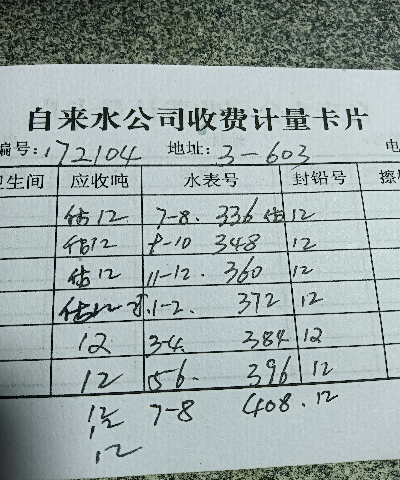 自来水公司收费计量卡片
编号:172104 地址:3-603 电
卫生间 应收吨 水表号 封铅号 擦
估12 7-8. 336 估12
估12 9-10 348 12
估12 11-12. 360 12
估12 1-2. 372 12
12 3-4. 384 12
12 5-6. 396 12
12 7-8 408. 12
12